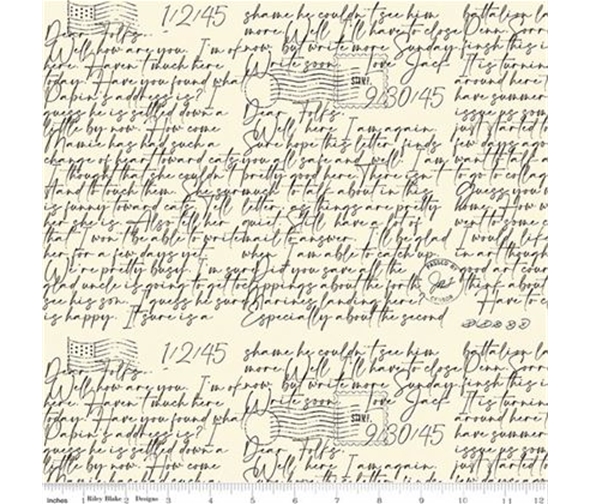 1/2/45
Dear Folks,
Well, how are you. I'm of
here. Haven't much here
today. Have you found wha
Papin's address is? I
guess he is settled down a
little by now. How come
Mamie has had such a
change of heart toward cats
I thought that she couldn't
stand to touch them. She sur
is funny toward cats. Tell
that she is. Also tell her
that I won't be able to write
her for a few days yet.
We're pretty busy. I'm sur
glad uncle is going to get to
see his son. I guess he sur
is happy. It sure is a
shame he couldn't see him
more. Well I'll have to close
now but write more Sunday.
Write soon. love Jack
9/30/45
Dear Folks.
Well here I am again.
Sure hope this letter finds
you all safe and well. I am
pretty good here. There isn't
much to talk about in this
letter, as things are pretty
quiet. Still have a lot of
mail to answer. I'll be glad
when I am able to catch up.
Did you save all the
clippings about the forth
Marines landing here?
Especially about the second
PASSED BY
battalion la
Penn. Sorr
finish this i
It is turnin
around here t
have summer
issue ps som
just started to
few days ago
want to talk a
to go to collag
Guess you w
home. How w
went to some c
I would lif
in art though
good art cour
think about
Have to c
1/2/45
Dear Folks,
Well, how are you. I'm of
here. Haven't much here
today. Have you found wha
Papin's address is? I
guess he is settled down a
little by now. How come
shame he couldn't see him
more. Well I'll have to close
now but write more Sunday.
Write soon. love Jack
9/30/45
Dear Folks.
Well here I am again.
battalion la
Penn. Sorr
finish this i
It is turnin
around here t
have summer
issue ps som
just started to
inches 1 Riley Blake 2 Designs 3 4 5 6 7 8 9 10 11 12